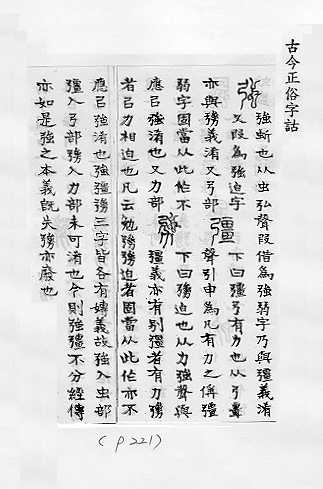 古今正俗字詁
強
強蚚也从虫弘聲叚借為強弱字乃與彊義淆
又叚為強迫字
亦與勥義淆又弓部
彊
下曰彊弓有力也从弓畺
聲引申為凡有力之偁彊
弱字固當从此作不
應㠯強淆也又力部
勥
下曰勥迫也从力強聲與
彊義亦有別彊者有力勥
者㠯力相迫也凡云勉勥勥迫者固當从此作亦不
應㠯強淆也強彊勥三字皆各有專義故強入虫部
彊入弓部勥入力部未可淆也今則強彊不分經傳
亦如是強之本義旣失勥亦廢也
(p221)